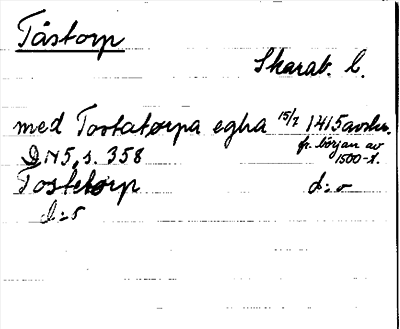 Tåstorp
Skarab. l.
med Tostatorpa egha 15/7 1415 avskr.
fr. början av
1500-t.
DN 5, s. 358
Tostetorp d:o